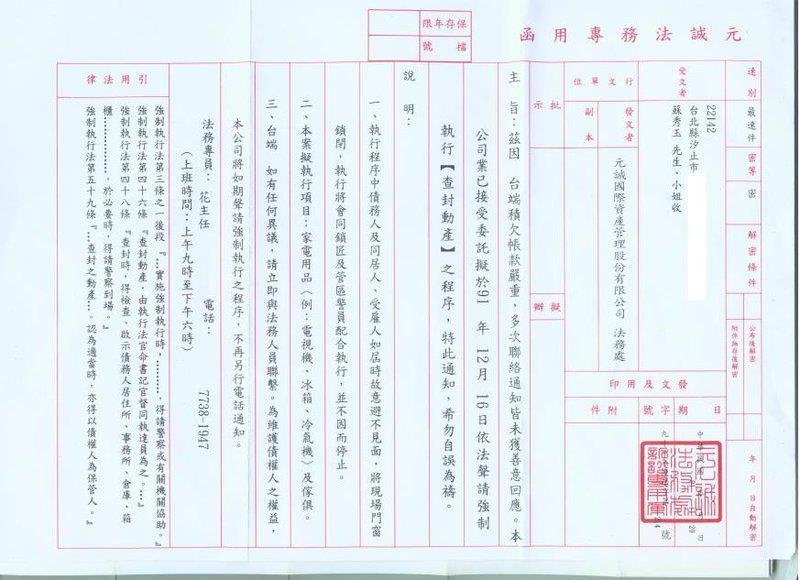 元誠法務專用函
保存年限
檔號
速別
最速件
密等
密
解密條件
公布後解密
附件抽存後解密
年 月 日自動解密
受文者
22142
台北縣汐止市
蘇秀玉 先生、小姐收
行文單位
副本
發文者
元誠國際資產管理股份有限公司 法務處
發文及用印
日期
字號
附件
批示
擬辦
主 旨:茲因 台端積欠帳款嚴重,多次聯絡通知皆未獲善意回應。本
公司業已接受委託擬於91 年 12 月 16 日依法聲請強制
執行【查封動產】之程序,特此通知,希勿自誤為禱。
說 明:
一、執行程序中債務人及同居人、受雇人如屆時故意避不見面,將現場門窗
鎖閉,執行將會同鎖匠及管區警員配合執行,並不因而停止。
二、本案擬執行項目:家電用品(例:電視機、冰箱、冷氣機)及傢俱。
三、台端 如有任何異議,請立即與法務人員聯繫。為維護債權人之權益,
本公司將如期聲請強制執行之程序,不再另行電話通知。
法務專員: 花主任 電話: 7738-1947
(上班時間:上午九時至下午六時)
引用法律
強制執行法第三條之一後段 『…實施強制執行時,………,得請警察或有關機關協助。』
強制執行法第四十六條 『查封動產,由執行法官命書記官督同執達員為之。…』
強制執行法第四十八條 『查封時,得檢查、啟示債務人居住所、事務所、倉庫、箱
櫃…………。於必要時,得請警察到場。』
強制執行法第五十九條 『…查封之動產…。認為適當時,亦得以債權人為保管人。』